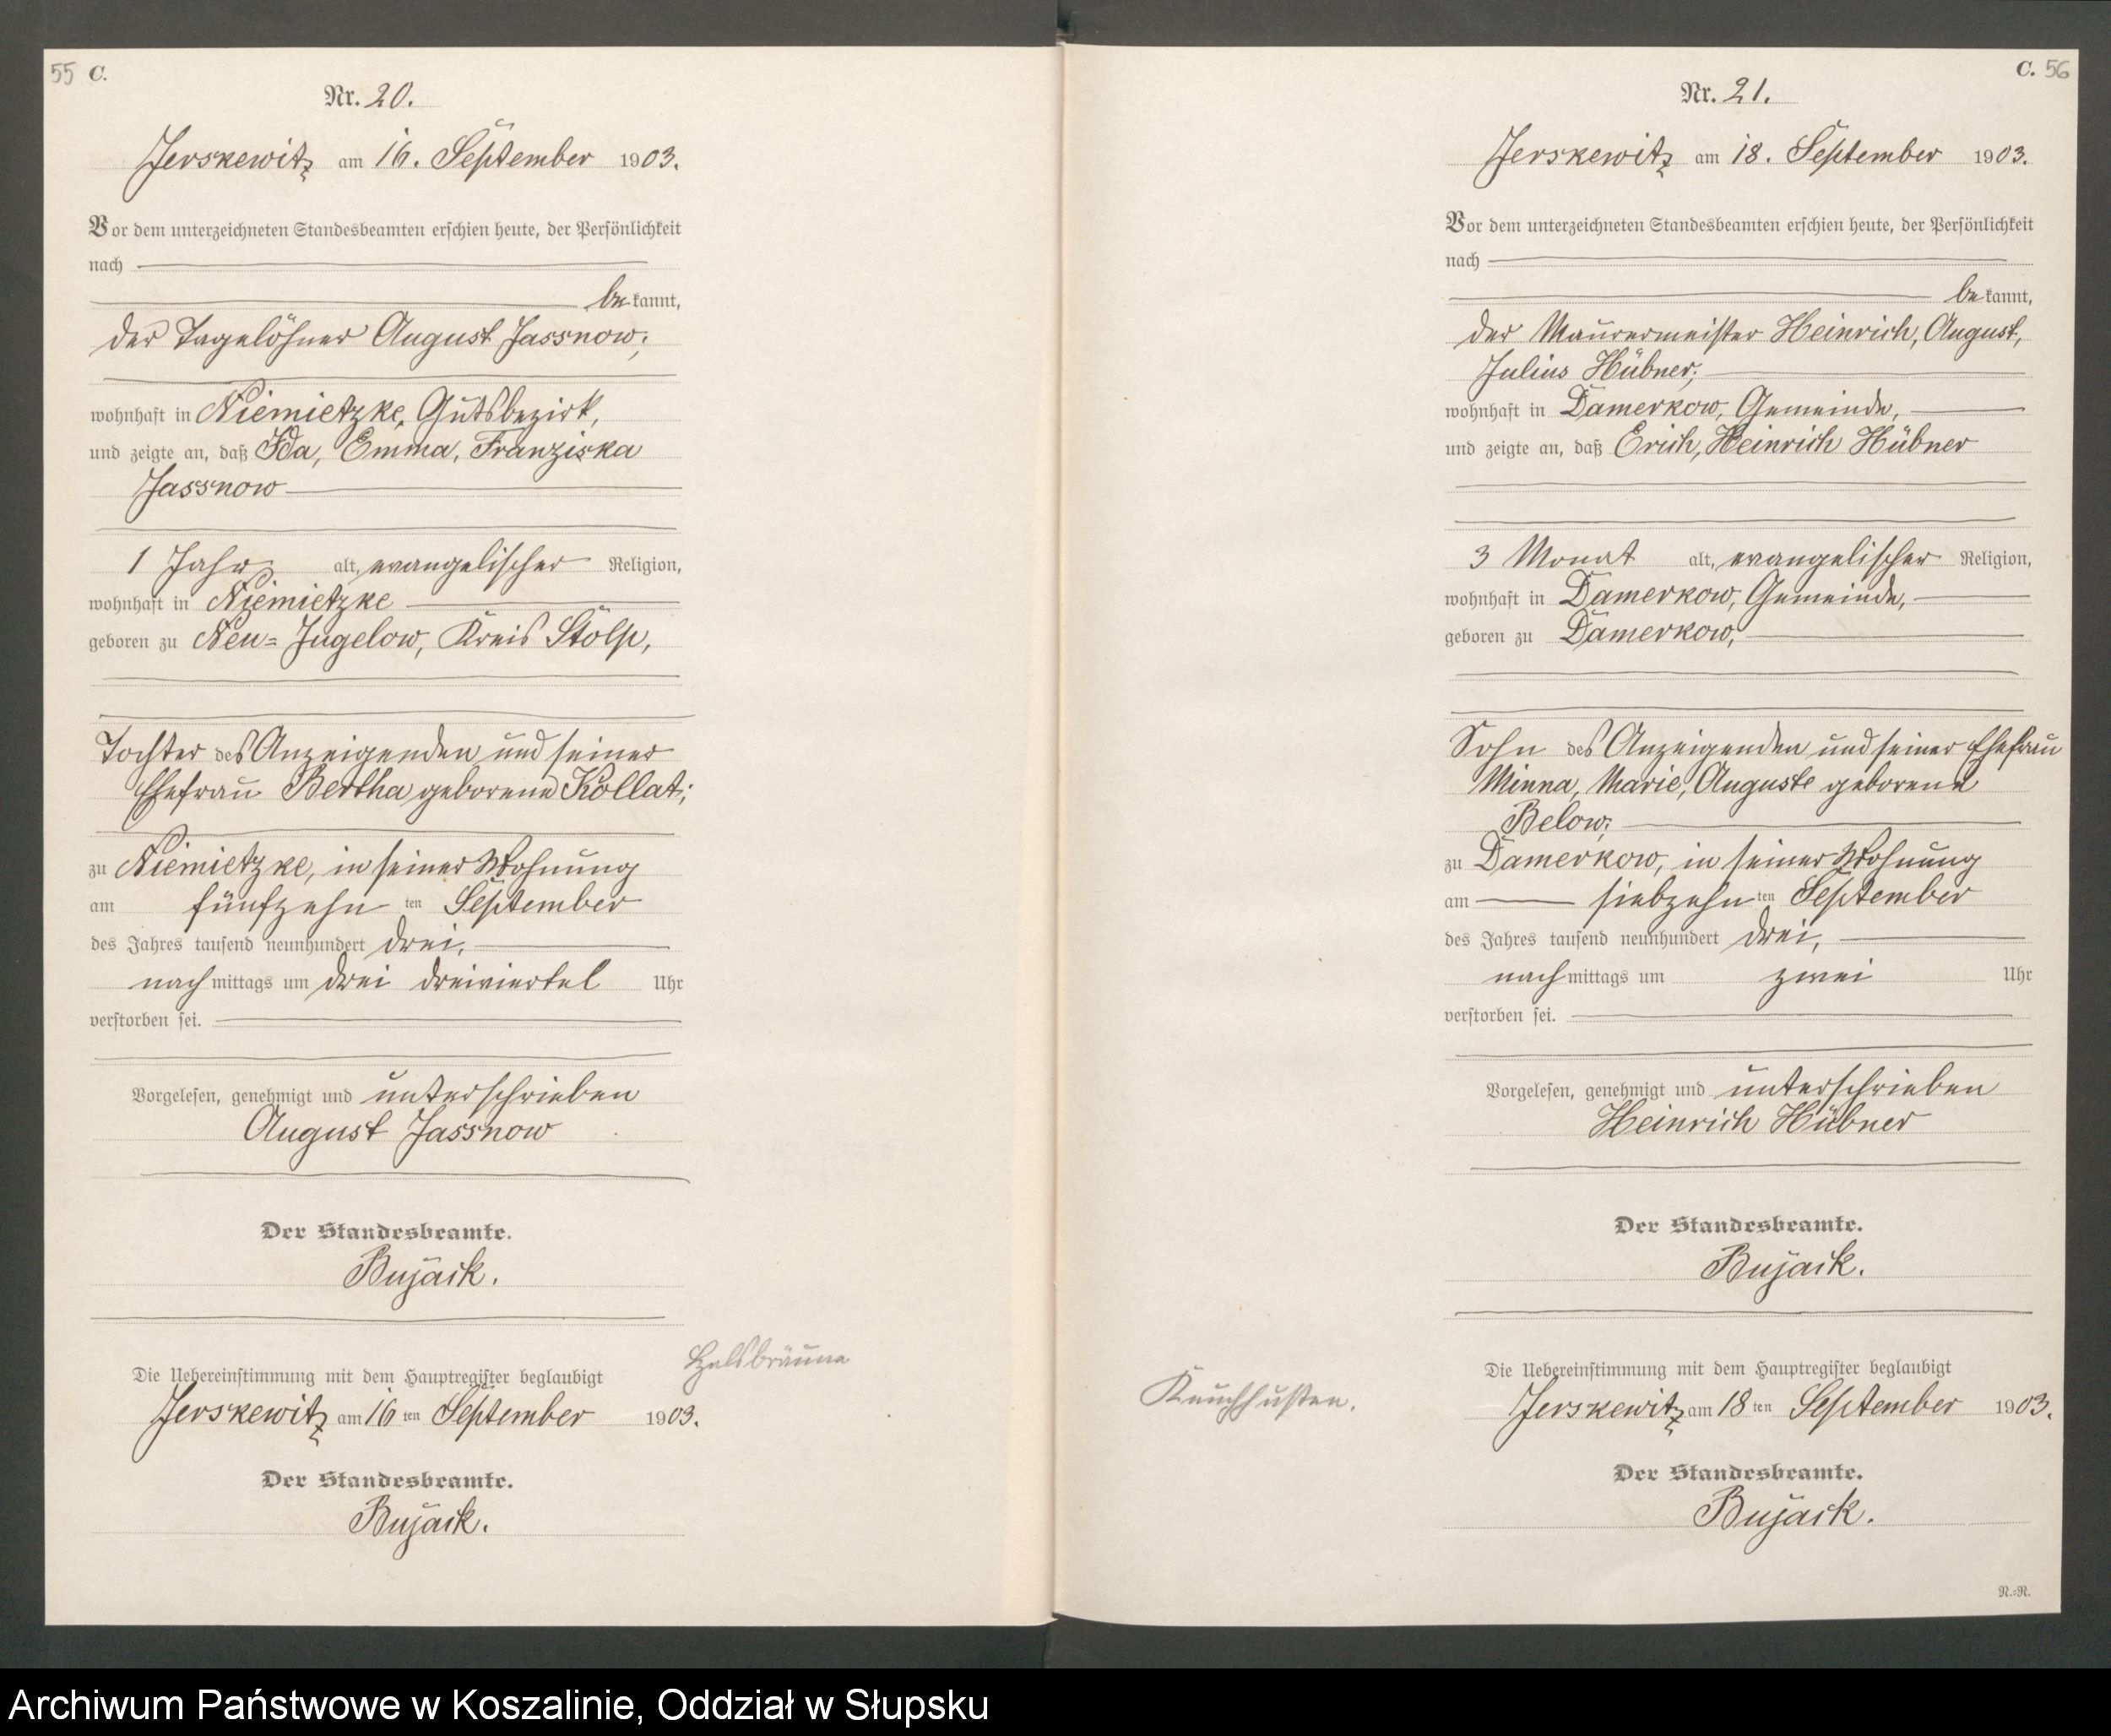 55 C.
Nr. 20.
Jerskewitz am 16. September 1903.
Vor dem unterzeichneten Standesbeamten erschien heute, der Persönlichkeit
nach
bekannt,
der Tagelöhner August Jassnow,
wohnhaft in Niemietzke, Gutsbezirk,
und zeigte an, daß Ida, Emma, Franziska
Jassnow
1 Jahr alt, evangelischer Religion,
wohnhaft in Niemietzke
geboren zu Neu=Jugelow, Kreis Stolp,
Tochter des Anzeigenden und seiner
Ehefrau Bertha geborene Kollat;
zu Niemietzke, in seiner Wohnung
am fünfzehnten September
des Jahres tausend neunhundert drei,
nachmittags um drei dreiviertel Uhr
verstorben sei.
Vorgelesen, genehmigt und unterschrieben
August Jassnow
Der Standesbeamte.
Bujack.
Halsbräune
Die Uebereinstimmung mit dem Hauptregister beglaubigt
Jerskewitz am 16ten September 1903.
Der Standesbeamte.
Bujack.
C. 56
Nr. 21.
Jerskewitz am 18. September 1903.
Vor dem unterzeichneten Standesbeamten erschien heute, der Persönlichkeit
nach
bekannt,
der Maurermeister Heinrich, August,
Julius Hübner,
wohnhaft in Damerkow, Gemeinde,
und zeigte an, daß Erich, Heinrich Hübner
3 Monat alt, evangelischer Religion,
wohnhaft in Damerkow, Gemeinde,
geboren zu Damerkow,
Sohn des Anzeigenden und seiner Ehefrau
Minna, Marie, Auguste geborene
Below;
zu Damerkow, in seiner Wohnung
am siebzehnten September
des Jahres tausend neunhundert drei,
nachmittags um zwei Uhr
verstorben sei.
Vorgelesen, genehmigt und unterschrieben
Heinrich Hübner
Der Standesbeamte.
Bujack.
Keuchhusten.
Die Uebereinstimmung mit dem Hauptregister beglaubigt
Jerskewitz am 18ten September 1903.
Der Standesbeamte.
Bujack.
N.=N.
Archiwum Państwowe w Koszalinie, Oddział w Słupsku